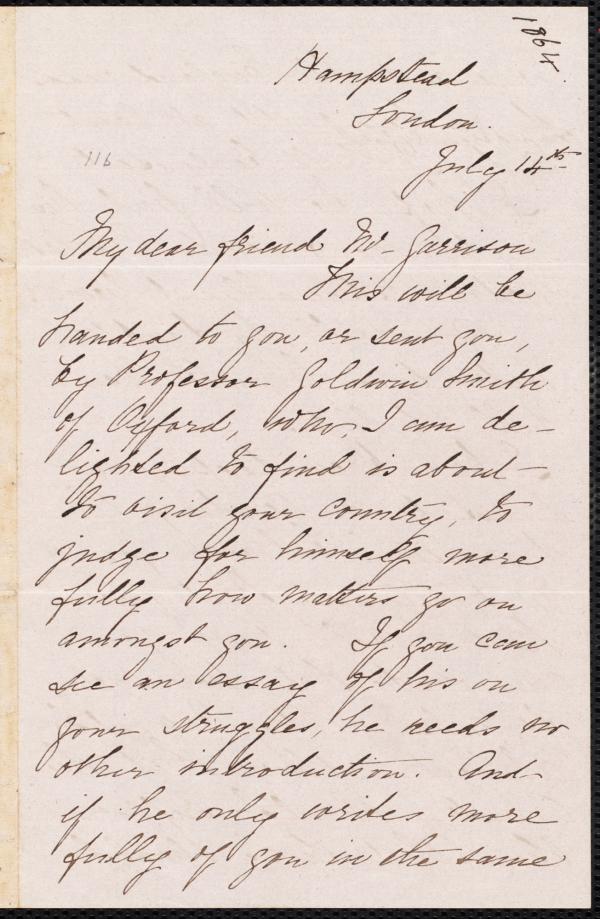 1864.
Hampstead
London.
116
July 14th
My dear friend Mr. Garrison
This will be
handed to you, or sent you,
by Professor Goldwin Smith
of Oxford, who, I am de-
lighted to find is about
to visit your country, to
judge for himself more
fully how matters go on
amongst you. If you can
see an essay of his on
your struggles, he needs no
other introduction. And
if he only writes more
fully of you in the same